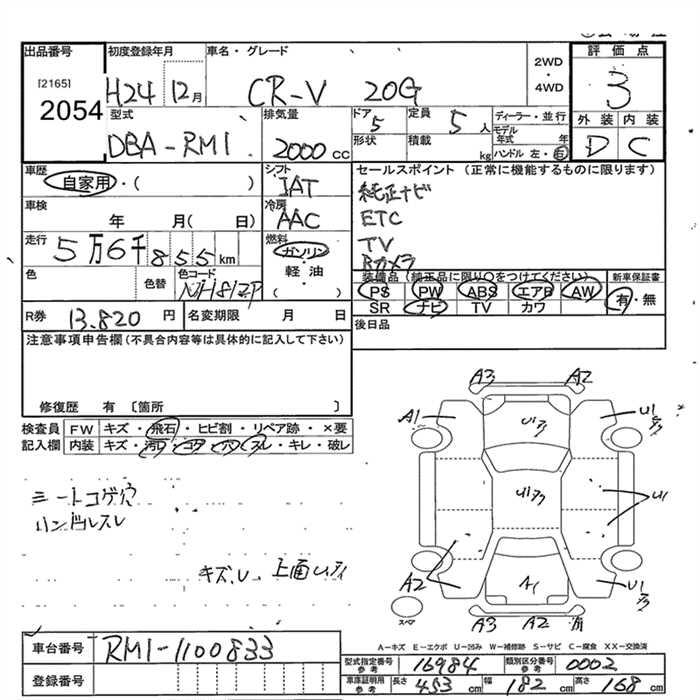 出品番号
[2165]
2054
初度登録年月
H24 12月
車名・グレード
CR-V 20G
2WD
・
4WD
評価点
3
外装 内装
D C
型式
DBA-RM1
排気量
2000 cc
ドア
5
形状
定員
5人
積載
kg
ディーラー・並行
モデル年式 年
ハンドル 左・右
車歴
自家用・( )
シフト
IAT
セールスポイント (正常に機能するものに限ります)
純正ナビ
ETC
TV
Bカメラ
車検
年 月( 日)
冷房
AAC
走行
5万6千855km
燃料
ガソリン
・
軽・油
( )
色
色替
色コード
NH812P
装備品 (純正品に限り○をつけてください)
PS PW ABS エアB AW
SR ナビ TV カワ
新車保証書
有・無
R券 13,820 円
名変期限 月 日
後日品
注意事項申告欄 (不具合内容等は具体的に記入して下さい)
修復歴 有 〔箇所 〕
検査員
記入欄
FW キズ・飛石・ヒビ割・リペア跡・×要
内装 キズ・汚レ・コゲ・穴・スレ・キレ・破レ
シートコゲ穴
ハンドルスレ
キズ,U 上面U
A3 A2
A1
U1
U1
A2
A1
U1
A3 A2
スペア
A-キズ E-エクボ U-凹み W-補修跡 S-サビ C-腐食 XX-交換済
車台番号 RM1-1100833
登録番号
型式指定番号 参考 16984
類別区分番号 参考 0002
車庫証明用 参考 長さ 453 cm 幅 182 cm 高さ 168 cm